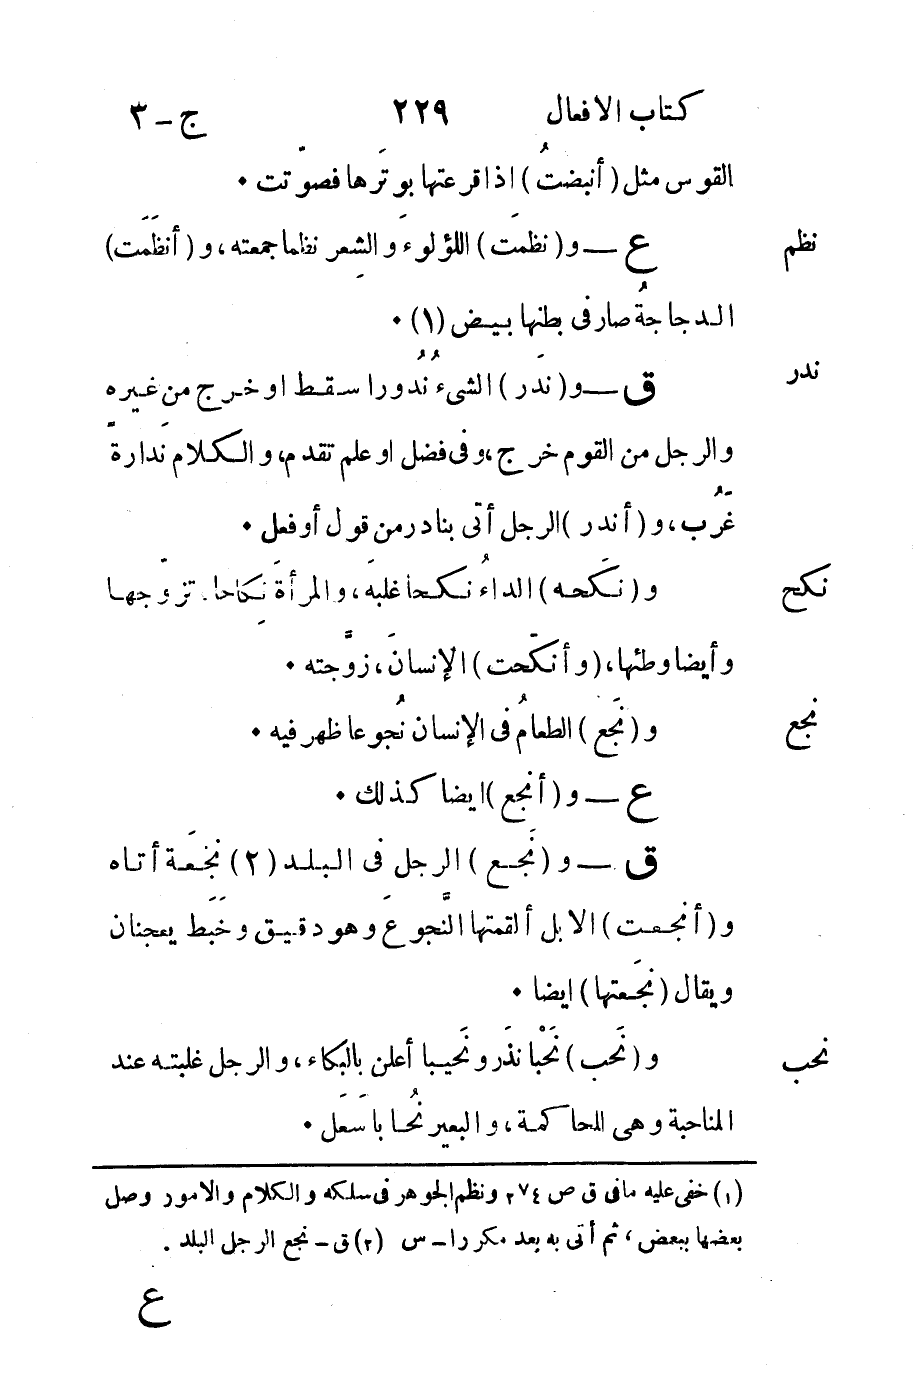 كتاب الافعال ٢٢٩ ج - ٣
القوس مثل ( أنبضتُ ) اذا قرعتها بوتَرها فصوّتت ٠
نظم ع — و ( نظمَت ) اللؤلوءَ والشِعر نظما جمعته ، و ( أنظَمَت )
الدجاجةُ صار فى بطنها بيض (١) ٠
ندر ق — و ( ندَر ) الشىءُ نُدُورا سقط او خرج من غيره
والرجل من القوم خرج ، وفى فضل او علم تقدم ، والكلام نَدارةً
غَرُب ، و ( أندر ) الرجل أتى بنادر من قول أو فعل ٠
نكح و ( نكَحه ) الداءُ نكحا غلبَه ، والمرأةَ نِكاحا تزوّجها
وأيضا وطئها ، ( وأنكحَت ) الإنسانَ ، زوَّجته ٠
نجع و ( نجَع ) الطعامُ فى الإنسان نُجوعا ظهر فيه ٠
ع — و ( أنجع ) ايضا كذلك ٠
ق — و ( نجَع ) الرجل فى البلد (٢) نجْعَة أتاه
و ( أنجعت ) الابل ألقمتها النَّجوعَ وهو دقيق وخَبَط يعجنان
ويقال ( نجَعتها ) ايضا ٠
نحب و ( نَحَب ) نَحْبا نذَر ونَحيبا أعلن بالبكاء ، والرجل غلبته عند
المناحبة وهى المحاكمة ، والبعير نُحابا سَعَل ٠
(١) خفى عليه مافى ق ص ٢٧٤ ونظم الجوهر فى سلكه والكلام والامور وصل
بعضها ببعض ، ثم أتى به بعد مكررا - س (٢) ق - نجع الرجل البلد .
ع